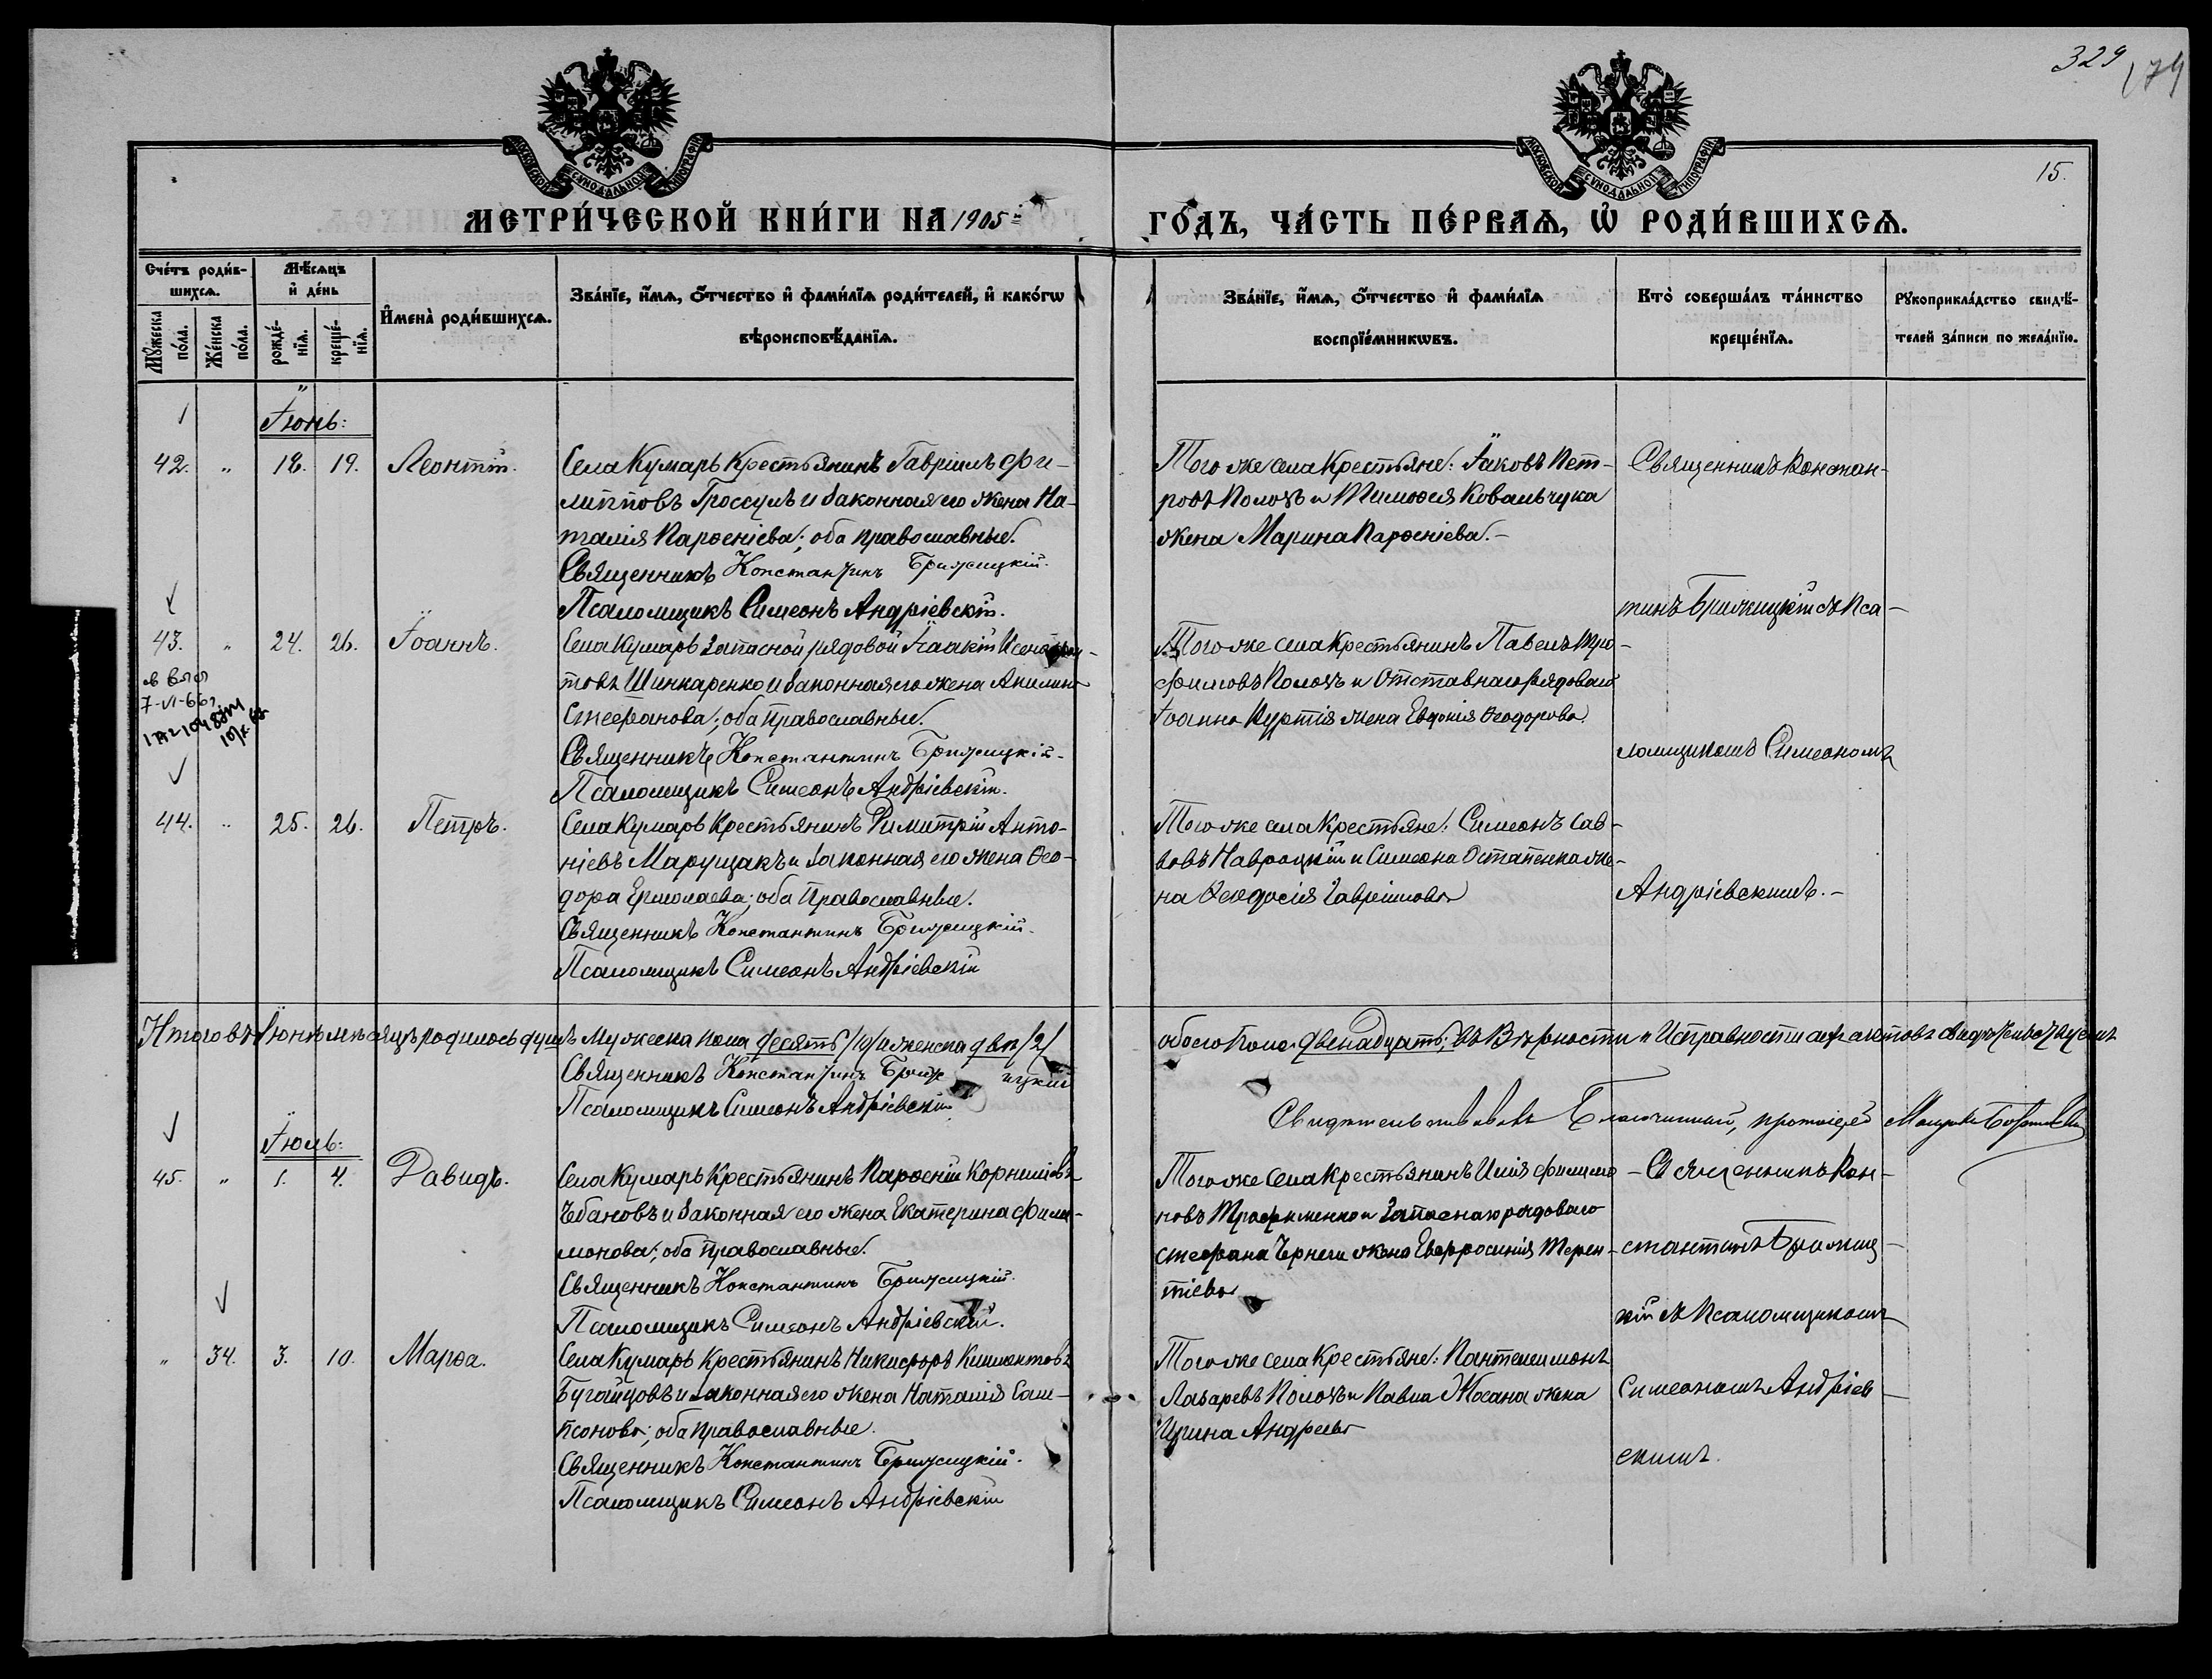 329
174
15.
МОСКОВСКОЙ СѴНОДАЛЬНОЙ ТИПОГРАФІИ
МОСКОВСКОЙ СѴНОДАЛЬНОЙ ТИПОГРАФІИ
МЕТРИ́ЧЕСКОЙ КНИ́ГИ НА 1905й
ГО́ДЪ, ЧА́СТЬ ПЕ́РВАѦ, Ѡ҆ РОДИ́ВШИХСѦ.
Сче́тъ роди́в-
шихсѧ.
Мѣ́сѧцъ
и҆ де́нь
И҆мена̀ роди́вшихсѧ.
Зва́нїе, и҆́мѧ, ѻ҆́тчество и҆ фами́лїѧ роди́телей, и҆ како́гѡ
вѣроисповѣ́данїѧ.
Мꙋ́жеска по́ла.
Же́нска по́ла.
рожде́-
нїѧ.
креще́-
нїѧ.
Зва́нїе, и҆́мѧ, ѻ҆́тчество и҆ фами́лїѧ
воспрїе́мникѡвъ.
Кто̀ соверша́лъ та́инство
креще́нїѧ.
Рꙋкоприкла́дство свидѣ́-
телей за́писи по жела́нїю.
Іюнь:
42. " 18. 19. Леонтій.
Села Кумаръ Крестьянинъ Гавріилъ Фи-
липповъ Гроссулъ и законная его жена На-
талія Парѳеніева; оба православные.
Священникъ Константинъ Брижицкій.
Псаломщикъ Симеонъ Андріевскій.
Того же села Крестьяне: Іаковъ Пет-
ровъ Попозъ и Тимоѳея Ковальчука
жена Марина Парѳеніева.–
Священникъ Констан-
тинъ Брижицкій съ Пса-
ломщикомъ Симеономъ
Андріевскимъ.–
43. " 24. 26. Іоаннъ.
7-VI-66г.
Села Кумаръ Запасной рядовой Іоакім
товъ Шинкаренко и законная его жена Акилина
Стефанова; оба православные.
Священникъ Константинъ Брижицкій.
Псаломщикъ Симеонъ Андріевскій.
Того же села Крестьянинъ Павелъ Тро-
фимовъ Попозъ и Отставнаго рядоваго
Іоанна Куртія жена Евдокія Ѳеодорова.
44. " 25. 26. Петръ.
Села Кумаръ Крестьянинъ Димитрій Анто-
ніевъ Марущакъ и законная его жена Ѳео-
дора Ермолаева; оба Православные.
Священникъ Константинъ Брижицкій.
Псаломщикъ Симеонъ Андріевскій
Того же села Крестьяне: Симеонъ Сав-
вовъ Навроцкій и Симеона Остапенка же-
на Ѳеодосія Гавриилова
Итого въ Іюнѣ мѣсяцѣ родилось душъ Мужеска пола десять /10/ и женска двѣ /2/
обоего Пола двенадцать; въ Вѣрности и Исправности актовъ свидѣтельствуемъ
Священникъ Константинъ Брижицкій
Псаломщикъ Симеонъ Андріевскій
Свидѣтельствовалъ Благочинный, протоіерей
Іюль:
45. " 1. 4. Давидъ.
Села Кумаръ Крестьянинъ Парѳеній Корниліевъ
Чебановъ и законная его жена Екатерина Фили-
монова; оба православные.
Священникъ Константинъ Брижицкій.
Псаломщикъ Симеонъ Андріевскій.
Того же Села Крестьянинъ Илія Филимо-
новъ Трофименко и Запаснаго рядоваго
Стефана Чернеги жена Евфросинія Терен-
тіева
Священникъ Кон-
стантинъ Брижиц-
кій съ Псаломщикомъ
Симеономъ Андріев-
скимъ.
" 34. 3. 10. Марѳа.
Села Кумаръ Крестьянинъ Никифоръ Климентовъ
Бугайцовъ и законная его жена Наталія Сам-
псонова; оба Православные.
Священникъ Константинъ Брижицкій.
Псаломщикъ Симеонъ Андріевскій
Того же села Крестьяне: Пантелеимонъ
Лазаревъ Попозъ и Павла Жосана жена
Ирина Андреева